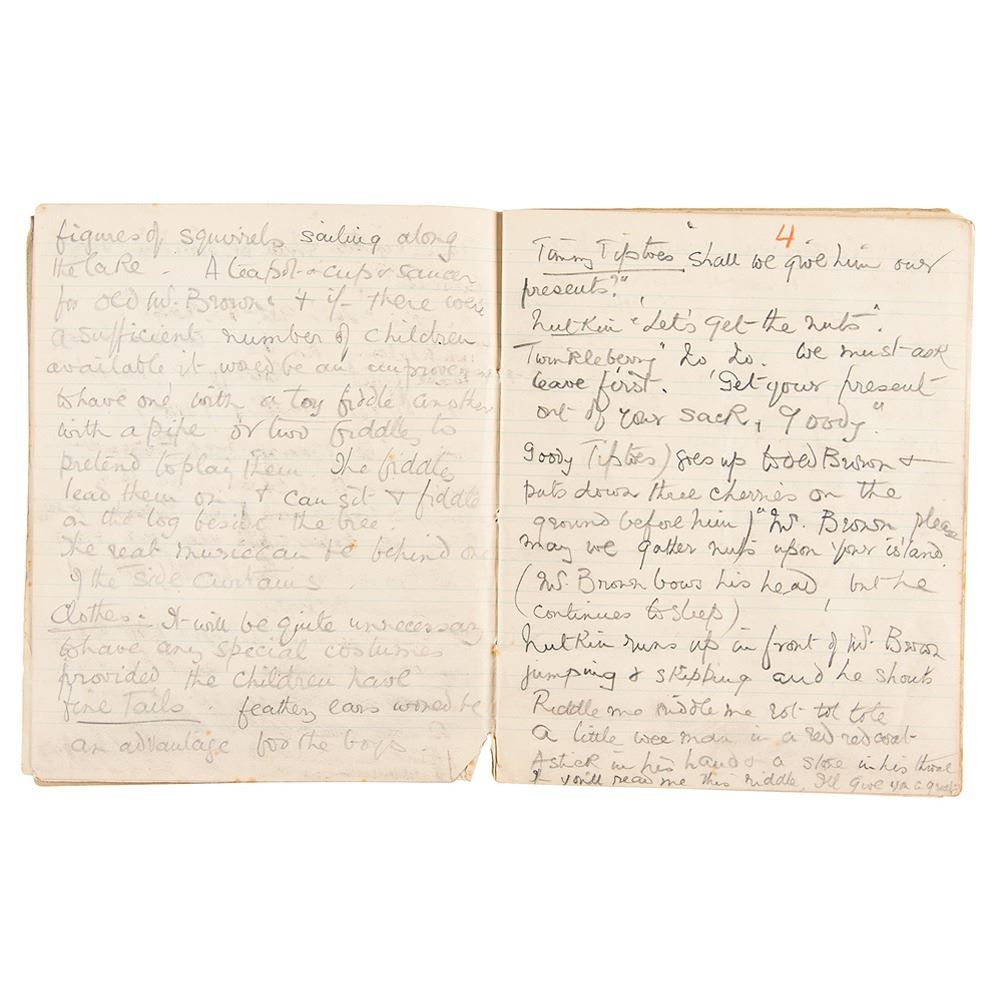 figures of squirrels sailing along
the lake. A teapot & cup & saucer
for old Mr. Brown, & if there were
a sufficient number of children
available it would be an improvement
to have one with a toy fiddle another
with a pipe or two fiddles, to
pretend to play them. The fiddles
lead them on, & can sit & fiddle
on the log beside the tree.
The real musician to be behind one
of the side curtains
Clothes:- It will be quite unnecessary
to have any special costumes
provided the children have
fine Tails. feathery ears would be
an advantage for the boys.
4
Timmy Tiptoes "Shall we give him our
presents?",
Nutkin "Let's get the nuts".
Twinkleberry "No No. We must ask
leave first. Get your present
out of your sack, Goody".
Goody Tiptoes) goes up to old Brown &
puts down three cherries on the
ground before him) "Mr. Brown please
may we gather nuts upon your island
(Mr. Brown bows his head, but he
continues to sleep)
Nutkin runs up in front of Mr. Brown
jumping & skipping and he shouts
Riddle me riddle me rot tot tote
A little wee man in a red red coat
A stick in his hand & a stone in his throat
If you'll read me this riddle, I'll give you a groat